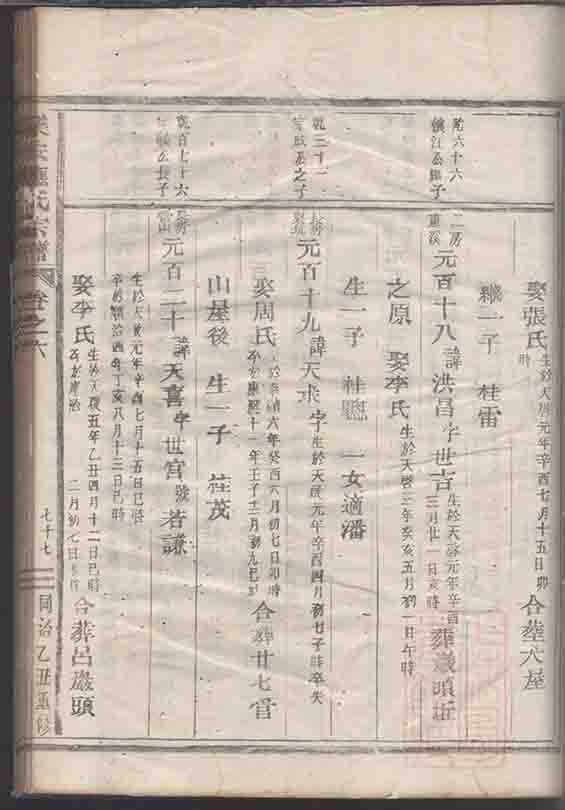 娶張氏 生於天啟元年辛酉七月十五日卯時 合塟大屋
繼一子 桂雷
六十六
二房
元百十八 諱洪昌字世吉 生於天啟元年辛酉三月廿一日亥時 葬
之原 娶李氏 生於天啟三年癸亥五月初一日午時
生一子 桂聰 一女適潘
三十一
之子
元百十九 諱天永字 生於天啟元年辛酉四月初七子時卒失
娶周氏 六年癸酉六月初七日卯時 康熙十一年壬子十二月初九巳時 合葬廿七官
山屋後 生一子 桂茂
百七十六
公長子
元百二十 諱天喜字世官號若謙
生於天啟元年辛酉七月十五日巳時
卒於順治四年丁亥八月十三日巳時
娶李氏 生於天啟五年乙丑四月十二日巳時 二月初七日 合葬呂巖頭
氏宗譜 卷之六
七十七
同治乙丑重修